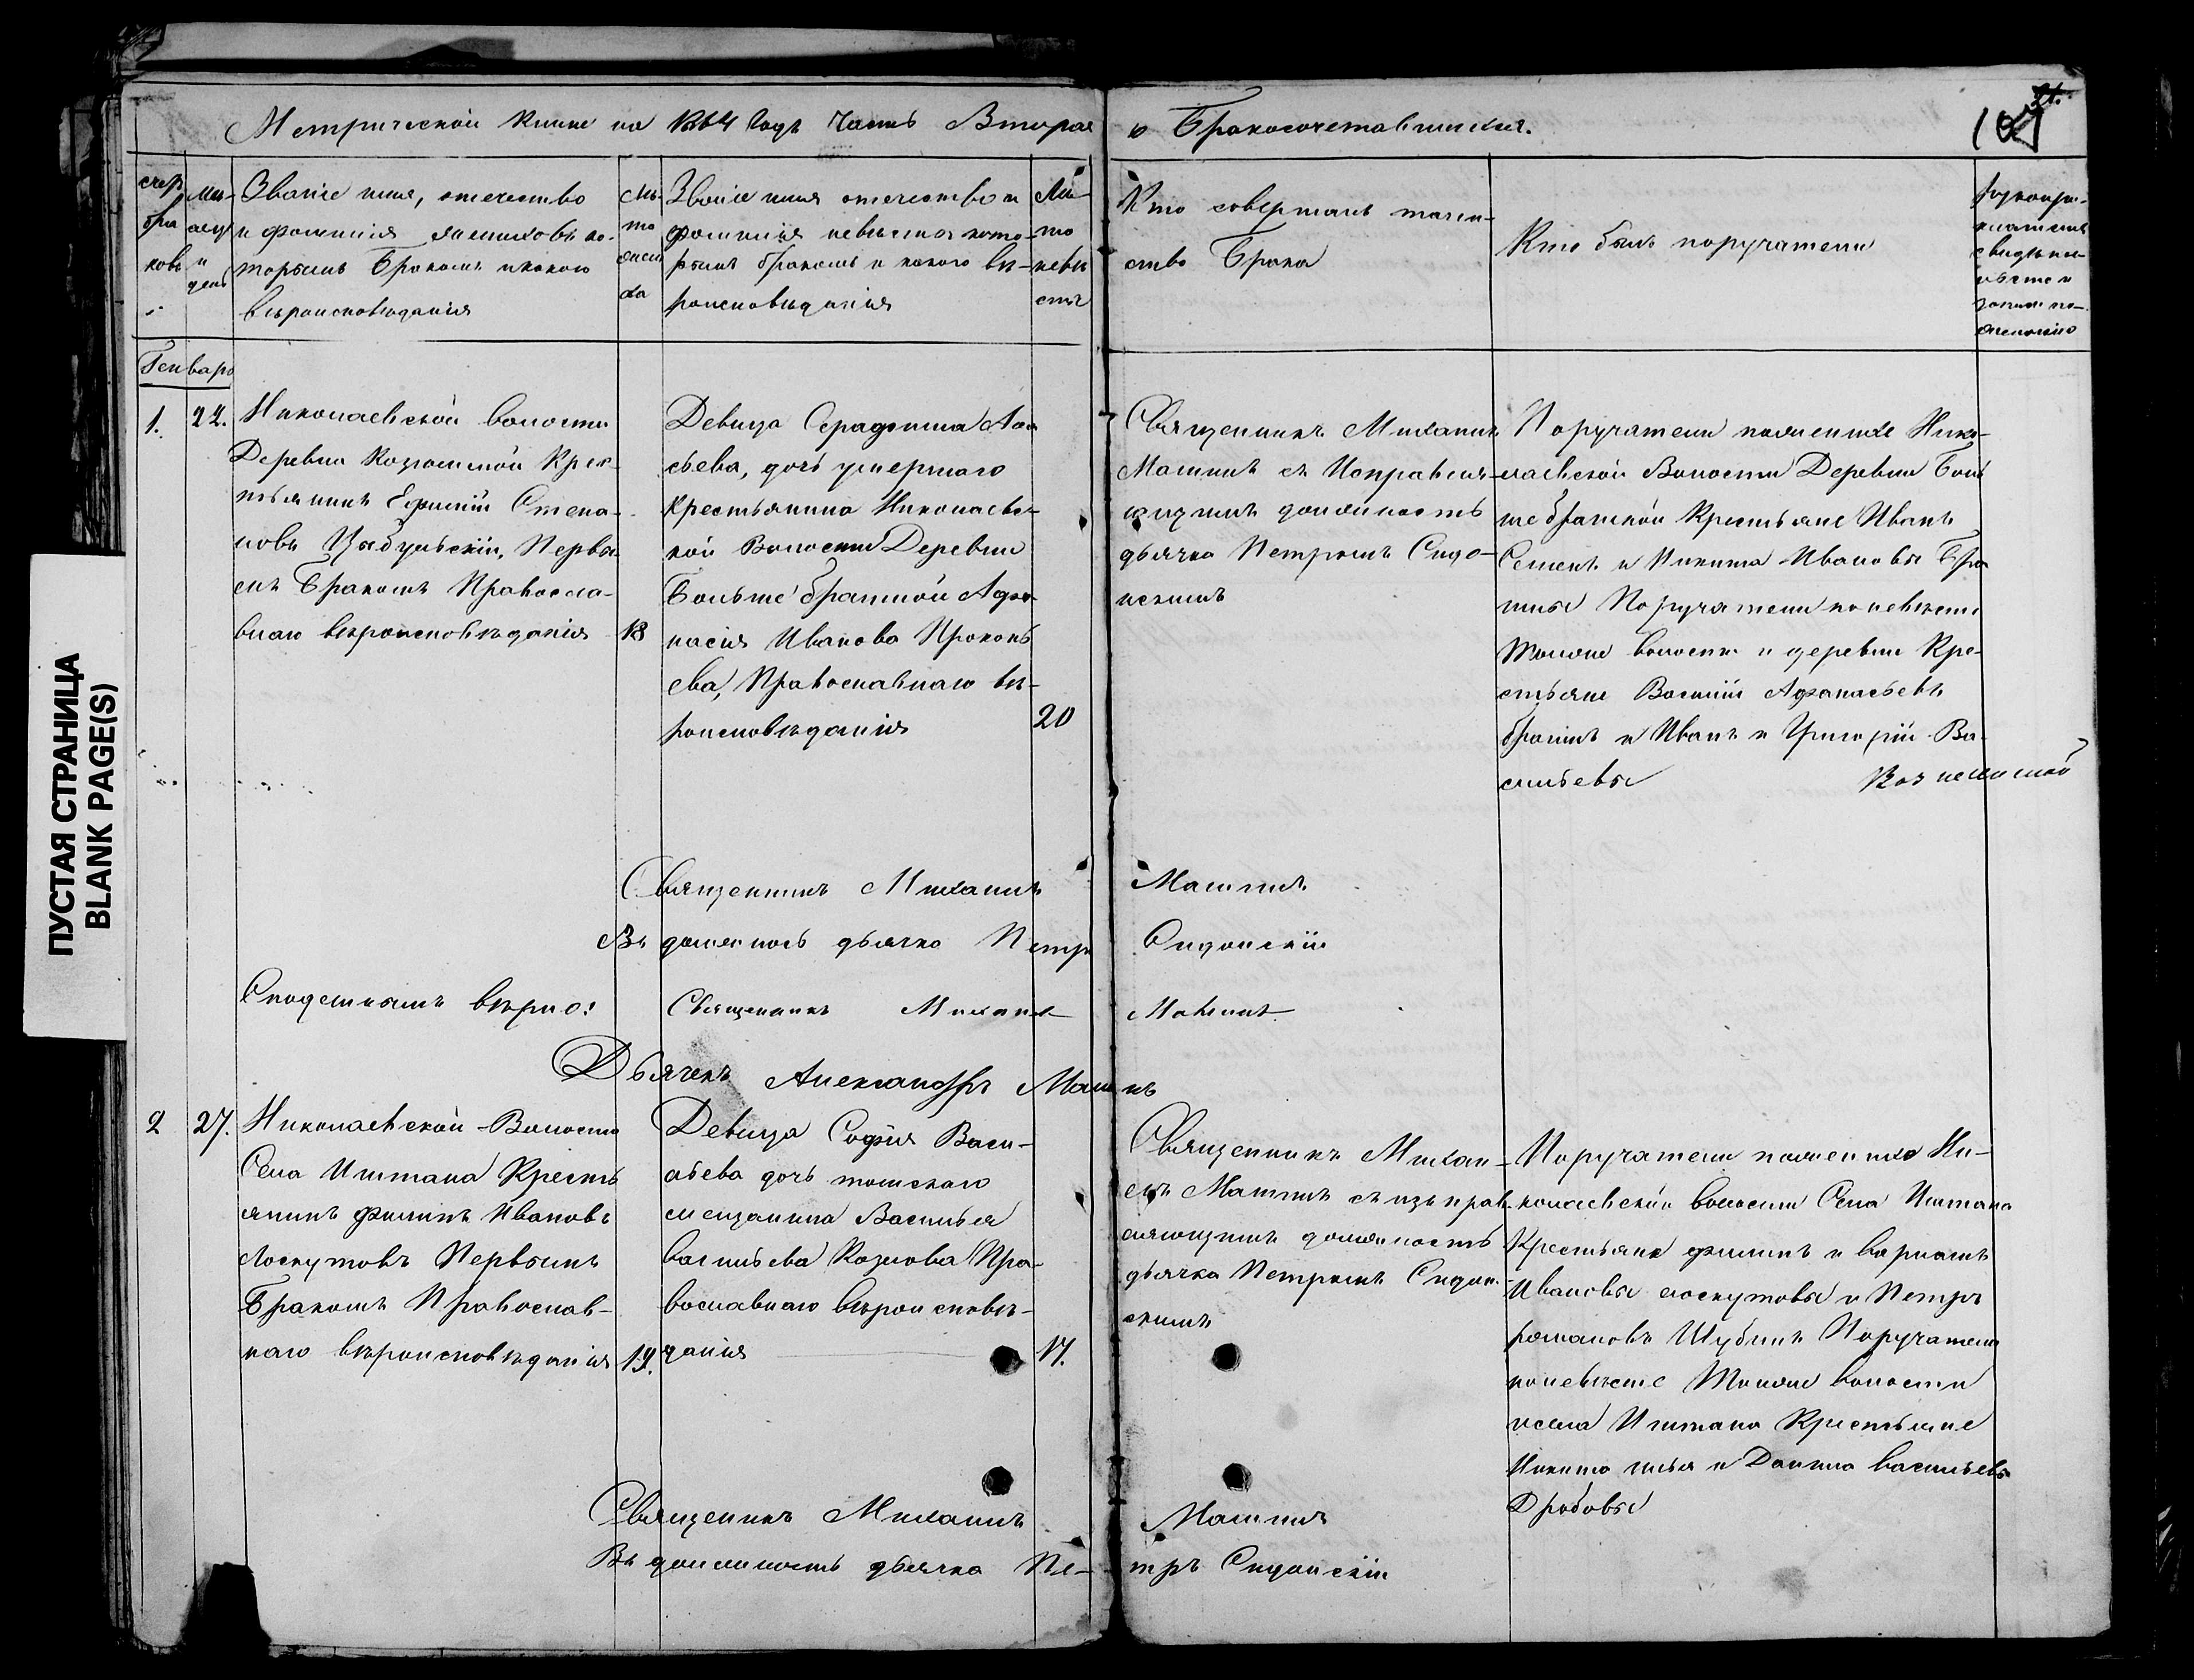 Метрической книги на 1864 годъ часть Вторая о Бракосочетавшихся.
21.
счетъ браковъ
месяцъ и день
Званіе имя, отечество
и фамилія жениховъ ко-
торымъ Бракомъ и какого
вѣроисповѣданія
лѣ-
та
жени
ха
Званіе имя отечество и
фамилія невѣстъ кото-
рымъ бракомъ и какого вѣ-
роисповѣданія
лѣ-
та
невѣ
стъ
Кто совершалъ таин-
ство Брака
Кто былъ поручатели
Генварь
1.
22.
Николаевской волости
Деревни Козюлиной Крес-
тьянинъ Ефимій Степа-
новъ Цыбульскій, Первы
мъ Бракомъ Правосла-
внаго вѣроисповѣданія
18
Девица Серафима Афа
сьева, дочь умершаго
Крестьянина Николаевс-
кой Волости Деревни
Больше братской Афа-
насія Иванова Прокопь
ева, Православнаго вѣ-
роисповѣданія
20
Священникъ Михаилъ
Машинъ съ Исправля-
ющимъ должность
дьячка Петромъ Сидо-
нскимъ
Поручатели по женихе Нико-
лаевской Волости Деревни Боль
шебратской Крестьяне Иванъ
Семенъ и Никита Ивановы Бра
тья Поручатели по невѣсте
Тойже волости и деревни Кре-
стьяне Василій Афанасьевъ
братъ и Иванъ и Григорій Ва-
сильевы
Священникъ Михаилъ Машинъ
Въ должность дьячка Петръ Сидонскій
Сподлиннымъ вѣрно: Священникъ Михаилъ Машинъ
Дьячекъ Александръ Машинъ
2
27.
Николаевской Волости
Села Иштана Кресть
янинъ Филипъ Ивановъ
Лоскутовъ Первымъ
Бракомъ Православ-
наго вѣроисповѣданія
19.
Девица Софія Васи-
льева дочь томскаго
мещанина Василья
Васильева Козлова Пра-
вославнаго вѣроисповѣ-
данія
17.
Священникъ Михаи-
лъ Машинъ съ изправ-
ляющимъ должность
дьячка Петромъ Сидон-
скимъ
Поручатели по женихе Ни-
колаевской волости Села Иштана
Крестьяне Филипъ и Варламъ
Ивановы Лоскутовы и Петръ
Романовъ Шубинъ Поручатели
по невѣсте Тойже волости
и села Иштана Крестьяне
Никита Илья и Данила Васильевы
Дробовы
Священникъ Михаилъ Машинъ
Въ должность дьячка Пе- тръ Сидонскій
ПУСТАЯ СТРАНИЦА
BLANK PAGE(S)